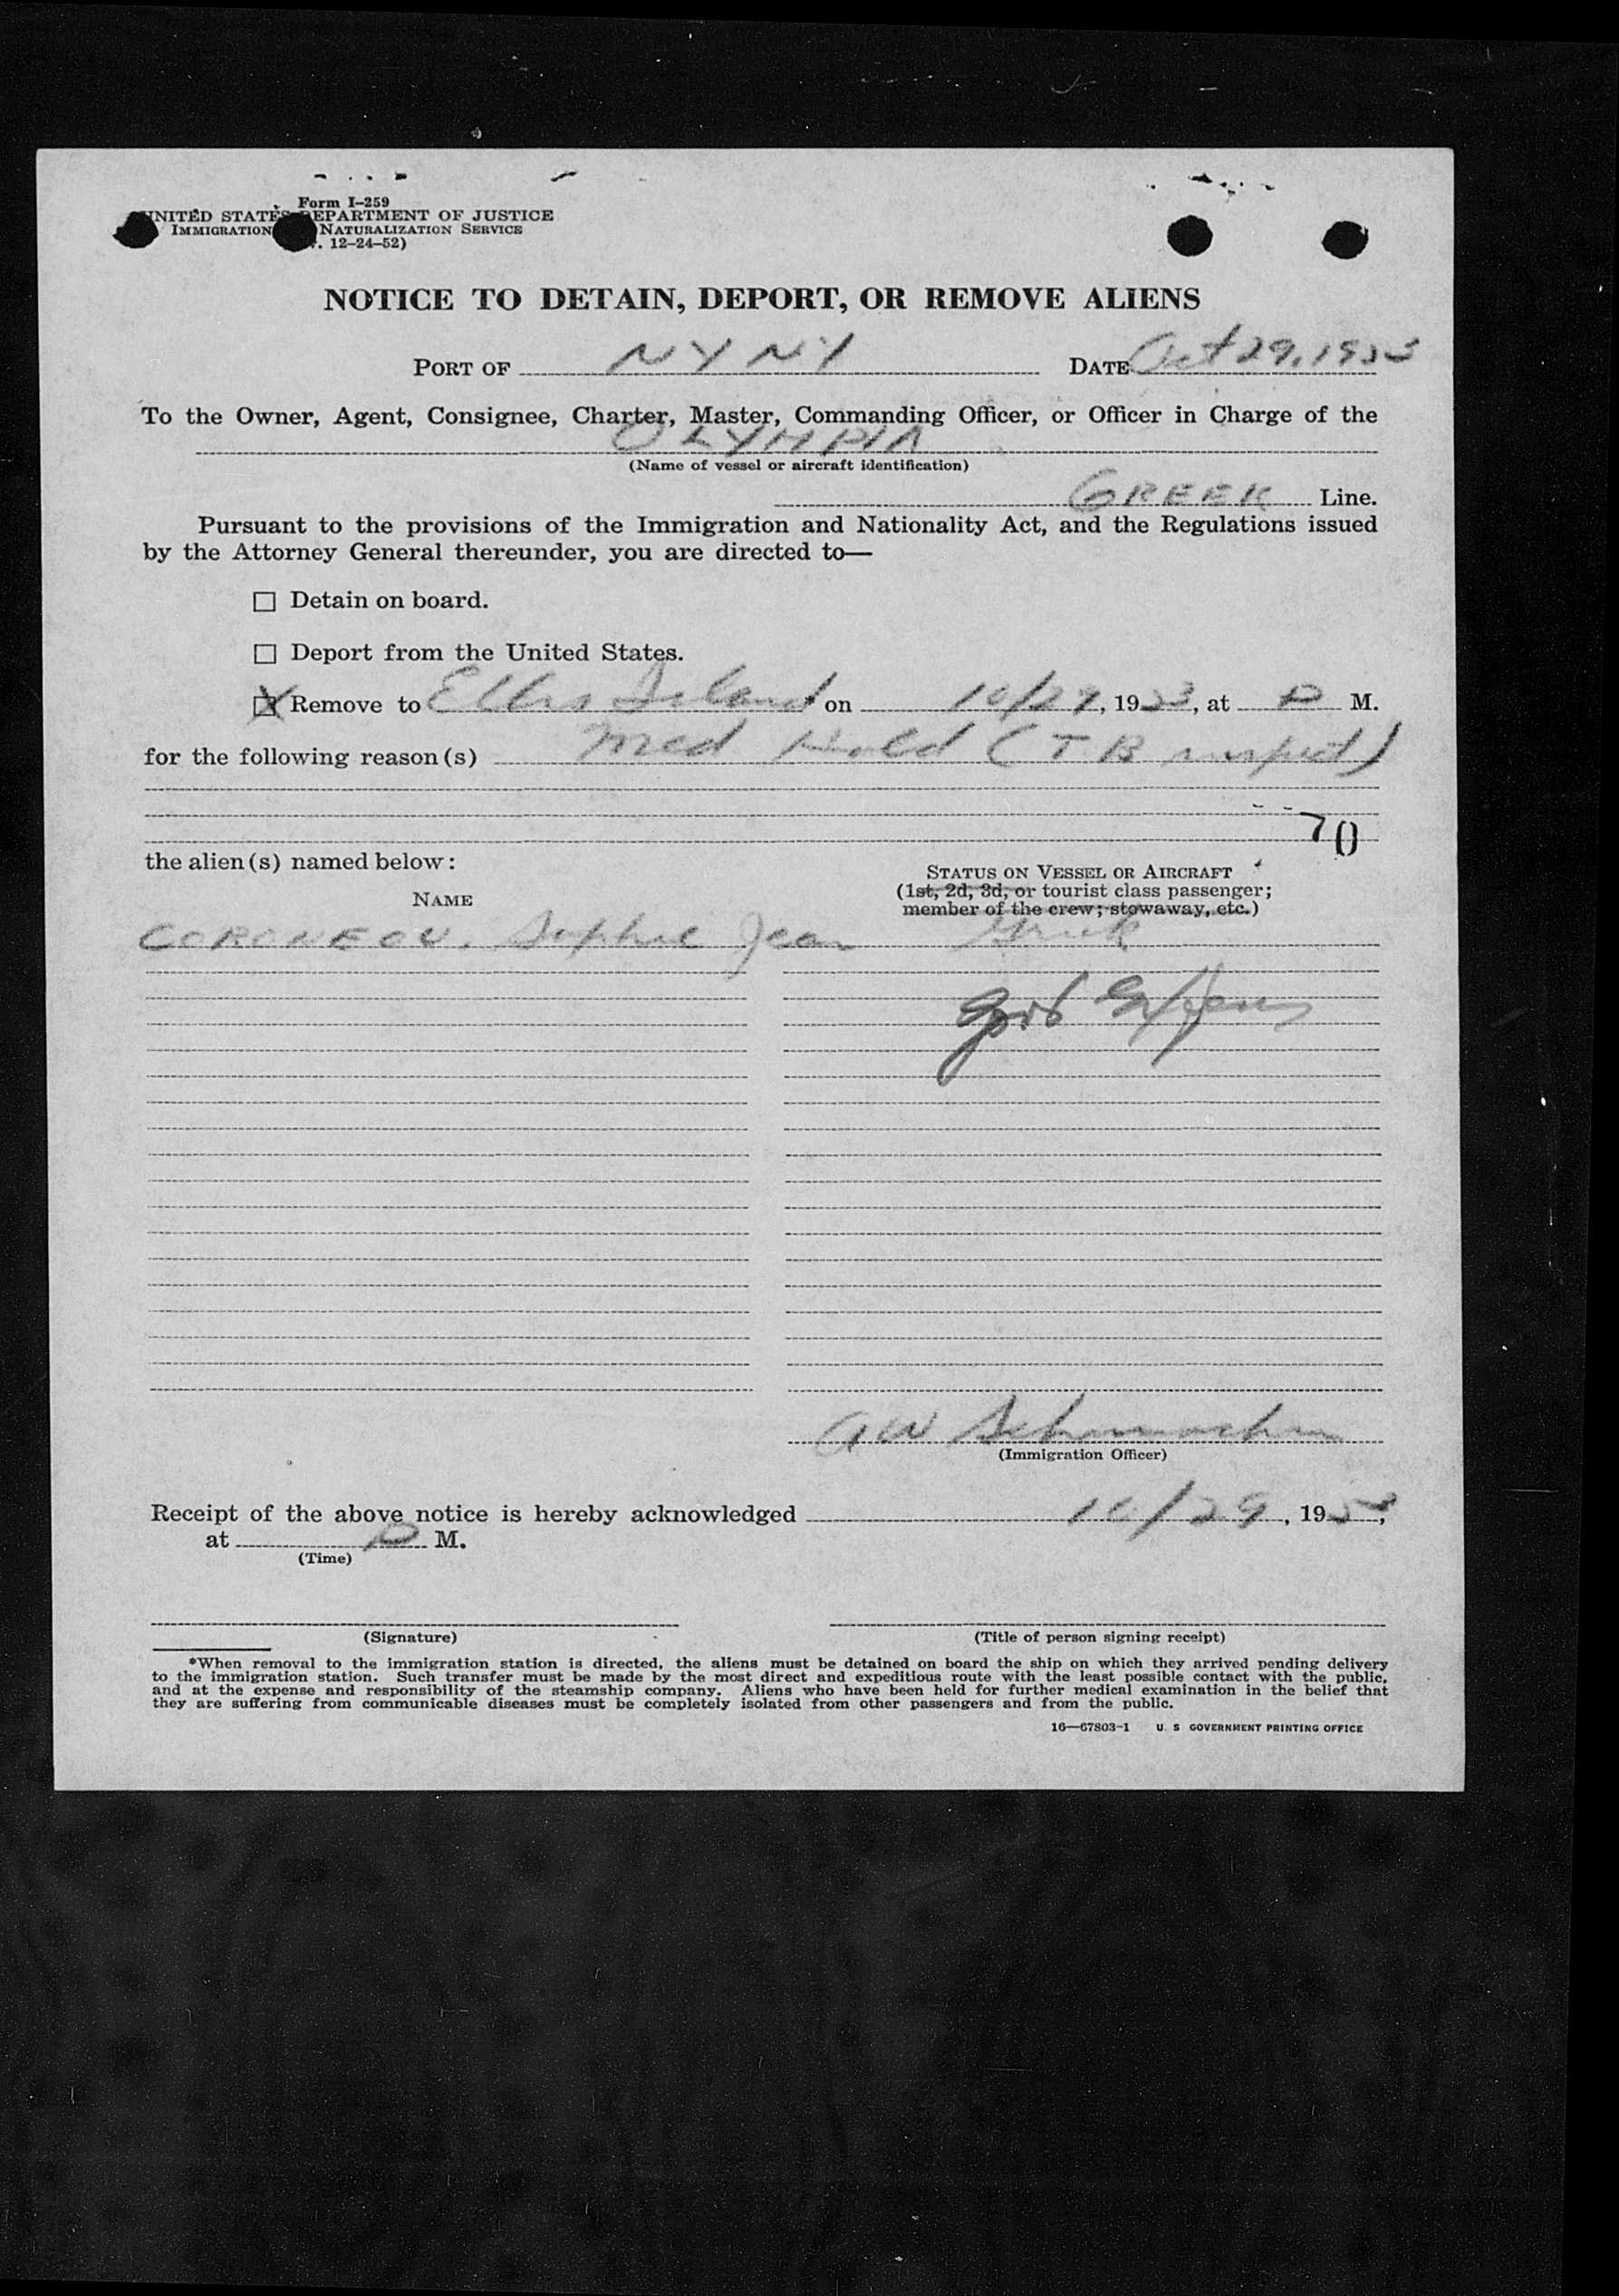 Form I-259
UNITED STATES DEPARTMENT OF JUSTICE
IMMIGRATION NATURALIZATION SERVICE
12-24-52)
NOTICE TO DETAIN, DEPORT, OR REMOVE ALIENS
PORT OF NY NY DATE Oct 29, 1953
To the Owner, Agent, Consignee, Charter, Master, Commanding Officer, or Officer in Charge of the
OLYMPIA
(Name of vessel or aircraft identification)
GREEK Line.
Pursuant to the provisions of the Immigration and Nationality Act, and the Regulations issued
by the Attorney General thereunder, you are directed to—
☐ Detain on board.
☐ Deport from the United States.
☒ Remove to Ellis Island on 10/29, 1953, at P M.
for the following reason(s) Med Hold (TB suspect)
70
the alien(s) named below:
STATUS ON VESSEL OR AIRCRAFT
(1st, 2d, 3d, or tourist class passenger;
member of the crew; stowaway, etc.)
NAME
CORONEOU, Sophie Jean Greek
Govt Expense
AW Schumacher
(Immigration Officer)
Receipt of the above notice is hereby acknowledged 10/29, 1953,
at P M.
(Time)
(Signature) (Title of person signing receipt)
*When removal to the immigration station is directed, the aliens must be detained on board the ship on which they arrived pending delivery
to the immigration station. Such transfer must be made by the most direct and expeditious route with the least possible contact with the public,
and at the expense and responsibility of the steamship company. Aliens who have been held for further medical examination in the belief that
they are suffering from communicable diseases must be completely isolated from other passengers and from the public.
16—67803-1 U. S. GOVERNMENT PRINTING OFFICE